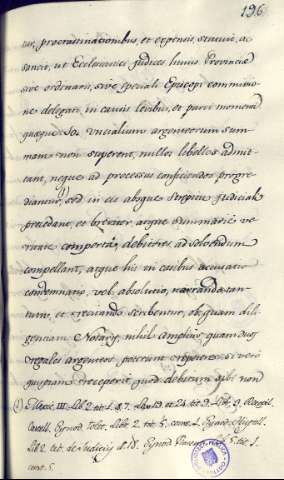 196
tur, procrastinationibus, et expensis, statuit, ac
sancit, ut Ecclesiastici Judices hujus Provinciæ
sive ordinarii, sive speciali Episcopi commissio
ne delegati, in causis levibus, et parvi momenti
quæque 50. uncialium argenteorum sum
mam non superent, nullos libellos admit
tant, neque ad processus conficiendos progre
diantur, (1) sed in eis absque strepitu judiciali
procedant, et breviter, atque summarie ve
ritate comperta, debitores, ad solvendum
compellant, atque his in casibus accusatio
condemnatio, vel absolutio, narranda tan
tum, et recitando scribentur, ob quam dili
gentiam Notarii, nihil amplius, quam duos
regales argenteos, possint recipere; si vero
quispiam receperit, quod debitum sibi non
(1) Lib. 2. tit. 1. 
Castell. Synod. Tolet. Libr. 2. tit. 5. cons. 1.
Lib. 2. tit. de Judiciis Synod. 5. tit. 1.
cons. 5.